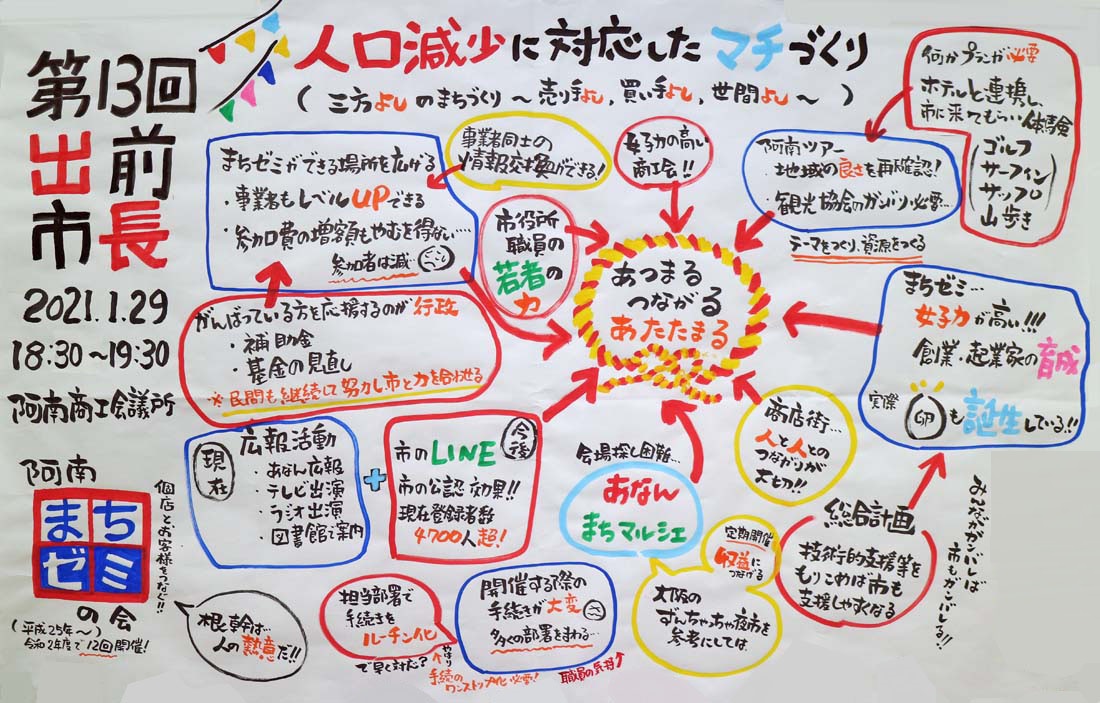 第13回
出前
市長
2021.1.29
18:30～19:30
阿南商工会議所
阿南
まち
ゼミ
の会
(平成25年～)
令和2年度で12回開催!
個店とお客様をつなぐ!!
根幹は…
人の熱意だ!!
人口減少に対応したマチづくり
(三方よしのまちづくり～売り手よし,買い手よし,世間よし～)
まちゼミができる場所を広げる
・事業者もレベルUPできる
・参加費の増額もやむを得ない…
参加者は減…
事業者同士の
情報交換ができる!
がんばっている方を応援するのが行政
・補助金
・基金の見直し
※民間も継続して努力し市と力を合わせる
市役所
職員の
若者の
力
女子力の高い
商工会!!
阿南ツアー
・地域の良さを再確認!
・観光協会のガンバリ必要…
テーマをつくり,資源をつくる
何かプランが必要
ホテルと連携し,
市に来てもらい体験
ゴルフ
サーフィン
サップ
山歩き
あつまる
つながる
あたたまる
まちゼミ…
女子力が高い!!!
創業・起業家の育成
実際
卵
も誕生している!!
現在
広報活動
・あなん広報
・テレビ出演
・ラジオ出演
・図書館で案内
+
今後
市のLINE
市の公認効果!!
現在登録者数
4700人超!
会場探し困難…
あなん
まちマルシェ
定期開催
収益に
つなげる
大阪の
ずんちゃちゃ夜市を
参考にしては
商店街…
人と人との
つながりが
大切!!
総合計画
技術的支援等を
もりこめば市も
支援しやすくなる
みんながガンバレば
市もガンバレる!!
担当部署で
手続きを
ルーチン化
で早く対応?
やはり
手続の
ワンストップ化必要!
開催する際の
手続きが大変
多くの部署をまわる…
職員の気持